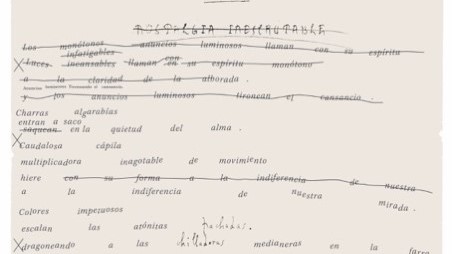 NOSTALGIA INEXCUSABLE
Los monótonos anuncios luminosos llaman con su espíritu
infatigables
Luces incansables llaman con en su espíritu monótono
a la claridad de la alborada .
y los anuncios luminosos tironean el cansancio
Charras algarabías
entran a saco
saquean en la quietud del alma .
Caudalosa cápila
multiplicadora inagotable de movimiento
hiere con su forma a la indiferencia de nuestra
a la indiferencia de nuestra mirada .
Colores impetuosos
escalan las atónitas fachadas.
dragoneando a las chilladoras medianeras en la farsa